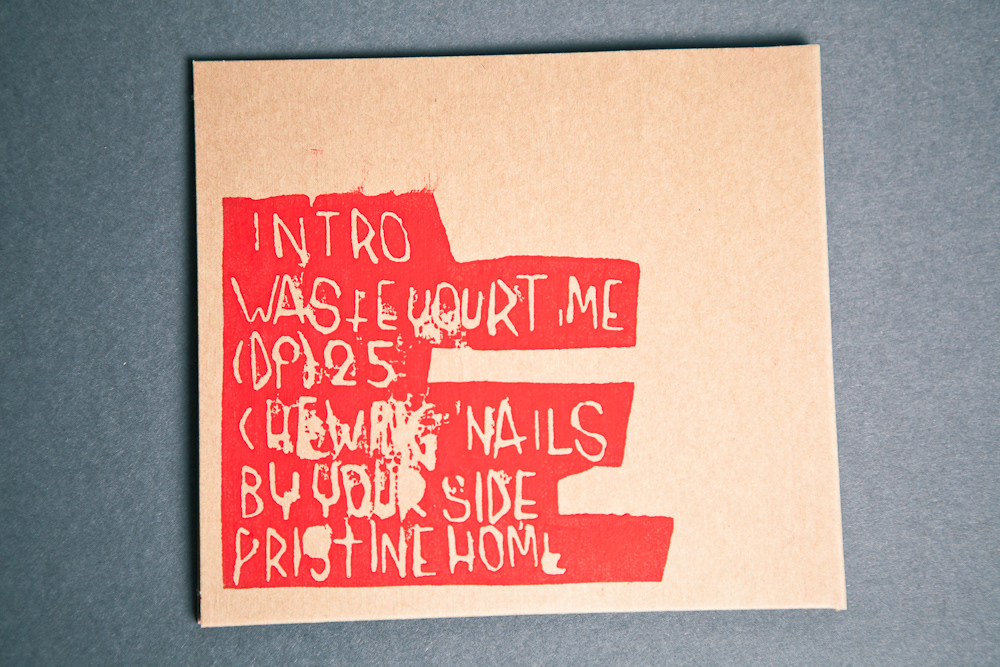 INTRO
WASTE YOUR TIME
(DP)25
CHEWING NAILS
BY YOUR SIDE
PRISTINE HOME